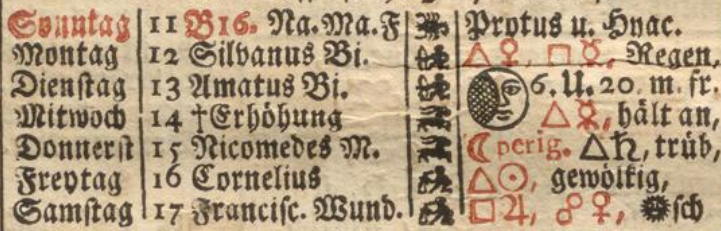 Sonntag 11 B16. Na. Ma. F Protus u. Hyac.
Montag 12 Silvanus Bi. △♀, □☿, Regen,
Dienstag 13 Amatus Bi. 6. U. 20. m. fr.
Mitwoch 14 †Erhöhung △☿, hält an,
Donnerst 15 Nicomedes M. ☾ perig. △♄, trüb,
Freytag 16 Cornelius △☉, gewölkig,
Samstag 17 Francisc. Wund. □♃, ☍♀, sch